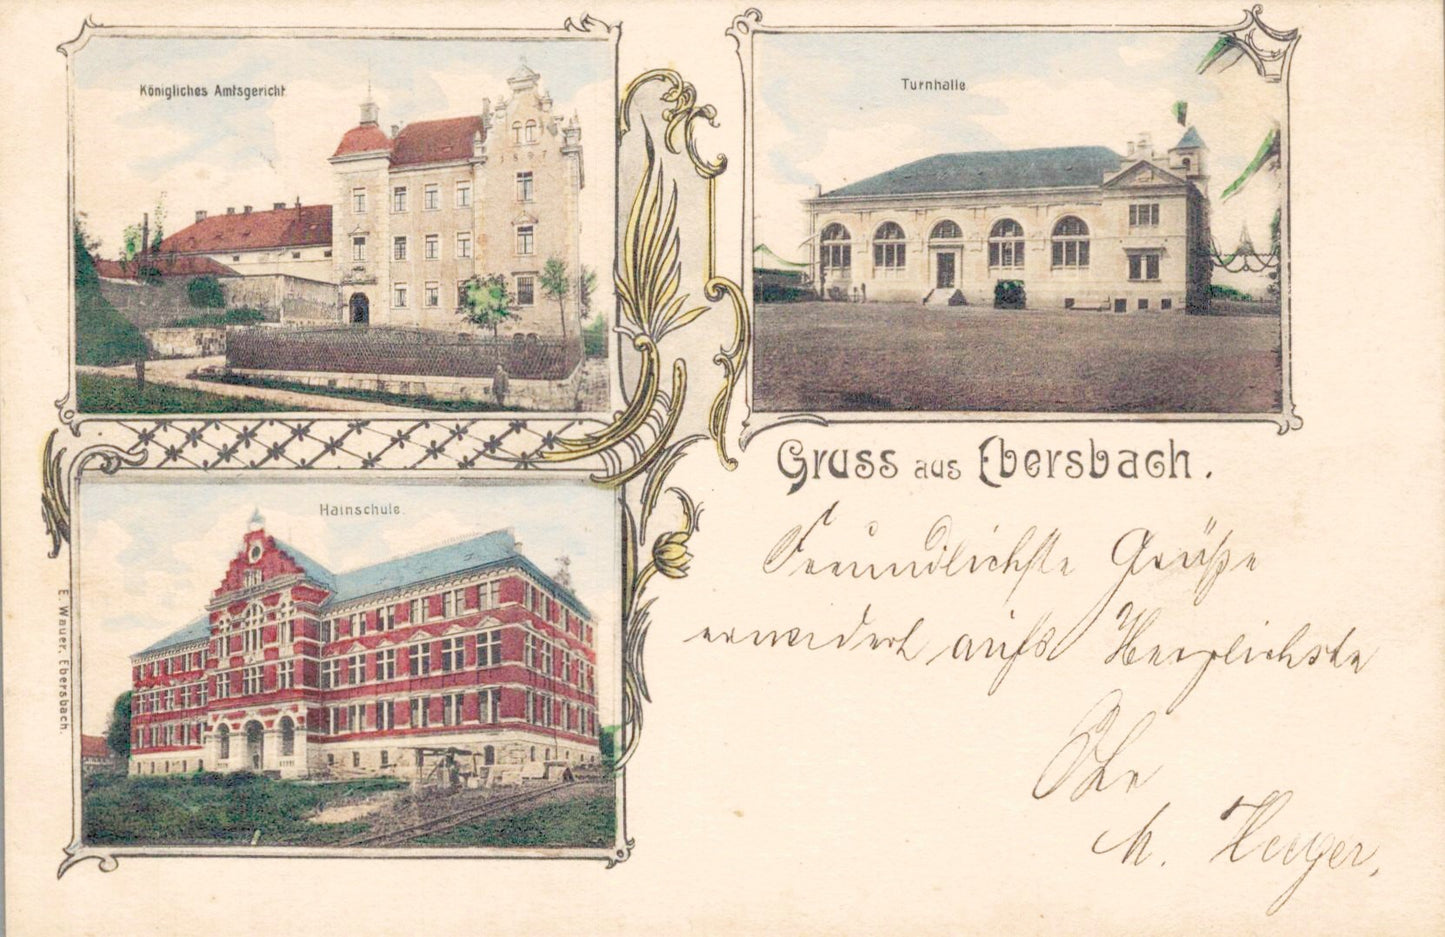 Königliches Amtsgericht
1897
Turnhalle
Gruss aus Ebersbach.
Hainschule.
E. Wauer, Ebersbach.
Freundlichste Grüße
erwidert aufs Herzlichste
Ihr